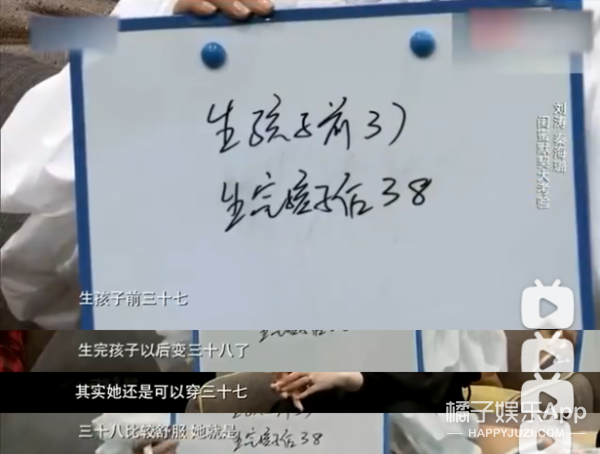 生孩子前37
生完孩子后38
刘涛秦海璐
闺蜜默契大考验
生孩子前三十七
生完孩子以后变三十八了
其实她还是可以穿三十七
三十八比较舒服 她就是
生完孩子后38
橘子娱乐App
HAPPYJUZI.COM